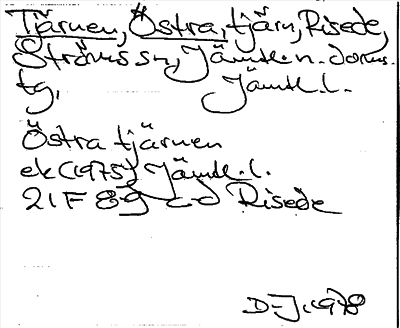 Tjärnen, Östra, tjärn, Risede,
Ströms sn, Jämtl. n. doms.
tg. Jämtl. l.
Östra tjärnen
ek (1975) Jämtl. l.
21F 8g c-d Risede
D-J. 1978